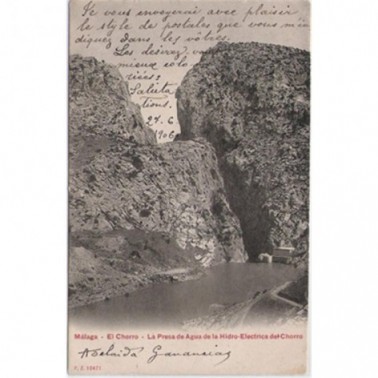 Je vous enverrai avec plaisir
le style de postales que vous m'in
diquez dans les vôtres.
Les desirez vous
mieux colo
risés?
Saluta
tions.
27.6
1906
Málaga - El Chorro - La Presa de Agua de la Hidro-Electrica del Chorro
Adelaida Gananciag